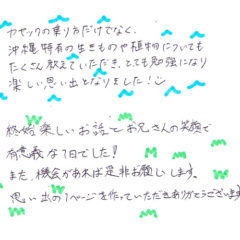 カヤックの乗り方だけでなく、
沖縄特有の生きものや植物についても
たくさん教えていただき、とても勉強になり
楽しい思い出となりました!
終始楽しいお話とお兄さんの笑顔で
有意義な1日でした!
また、機会があれば是非お願いします。
思い出の1ページを作っていただきありがとうございます